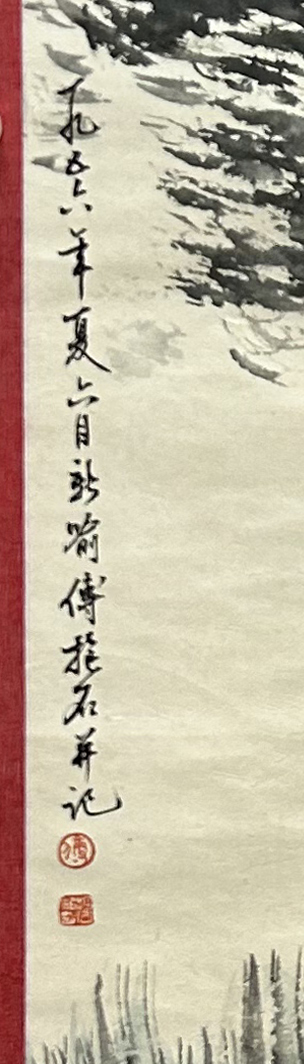 一九五六年夏六月新喻傅抱石并记
傅